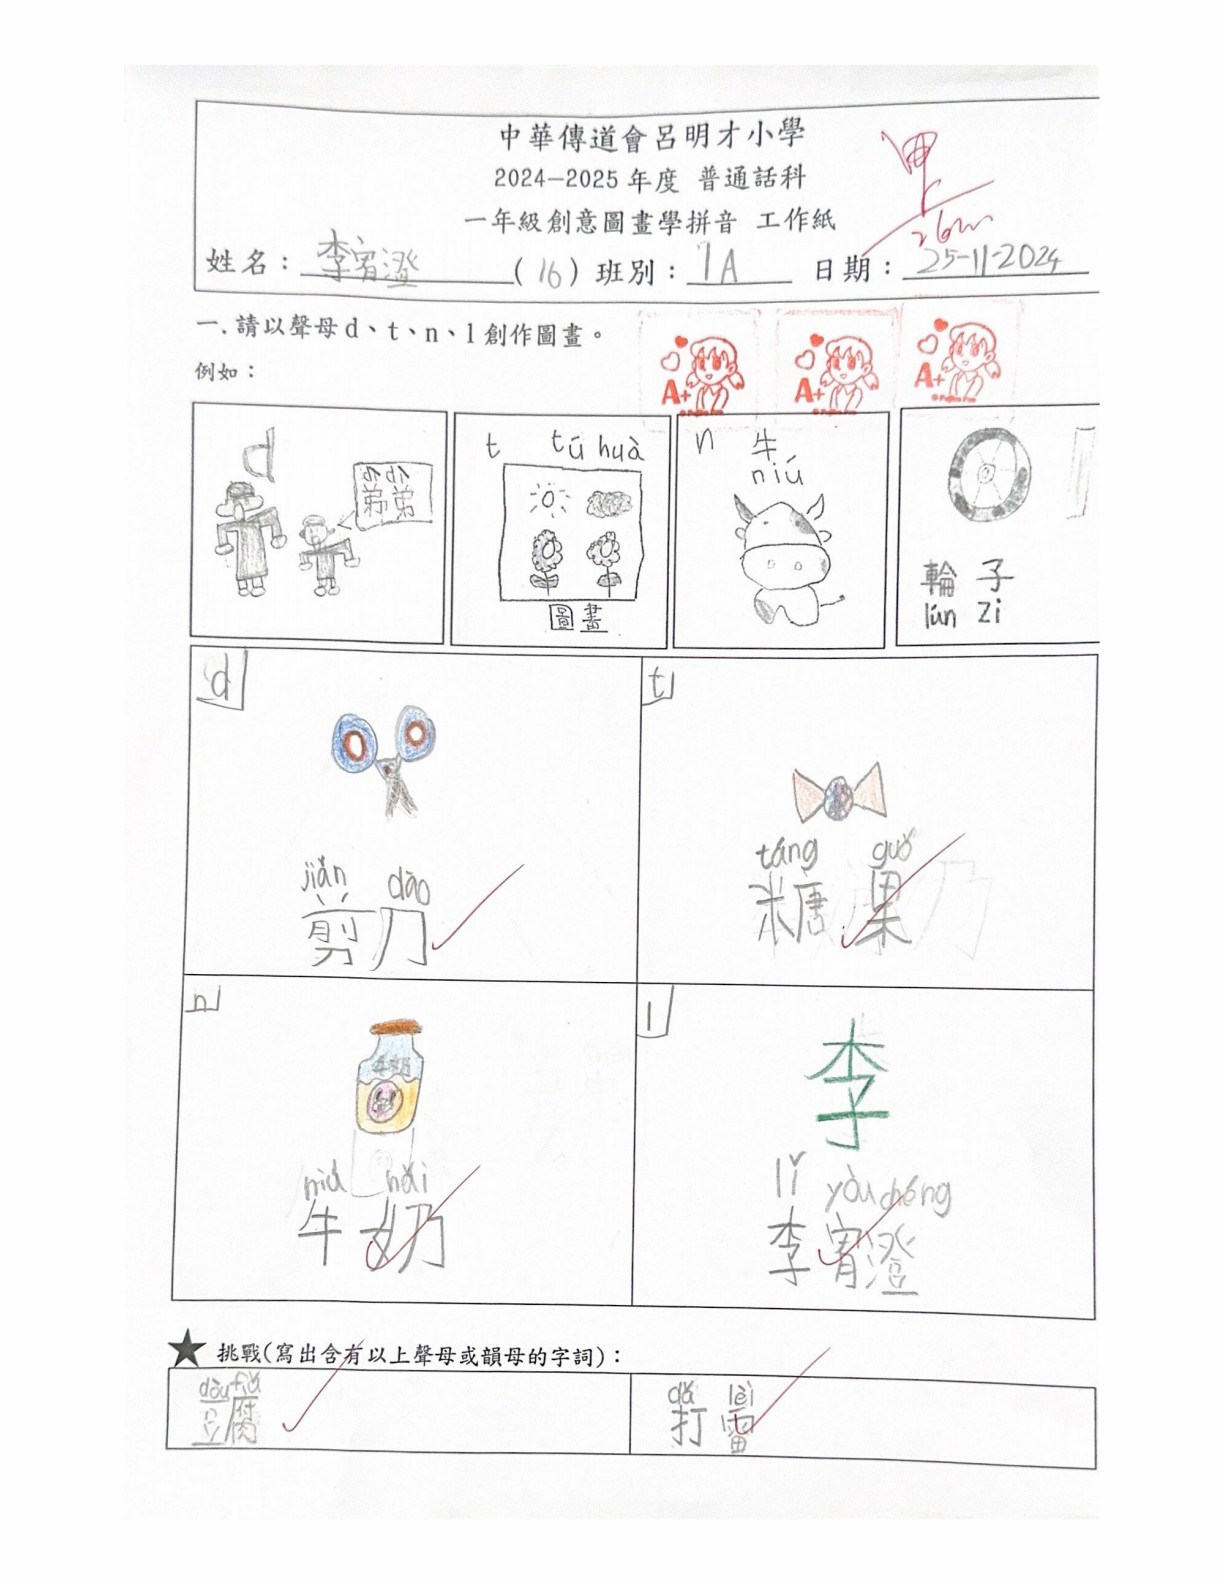 中華傳道會呂明才小學
2024—2025 年度 普通話科
一年級創意圖畫學拼音 工作紙
姓名：李宥澄 (16) 班別：1A 日期：25-11-2024
一.請以聲母d、t、n、l創作圖畫。
例如：
A+ A+ A+
d
弟弟
t tú huà
圖畫
n 牛
niú
輪子
lún zi
d
jiǎn dāo
剪刀
t
táng guǒ
糖果
n
niú nǎi
牛奶
l
李
lǐ yòu chéng
李宥澄
★ 挑戰(寫出含有以上聲母或韻母的字詞)：
dòu fǔ
豆腐
dǎ léi
打雷